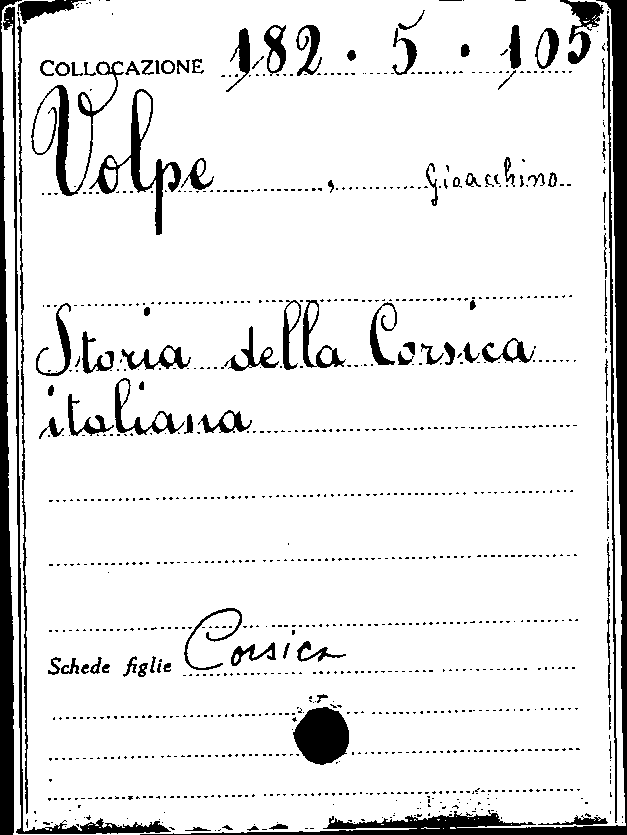 COLLOCAZIONE 182 · 5 · 105
Volpe , Gioacchino
Storia della Corsica
italiana
Schede figlie Corsica